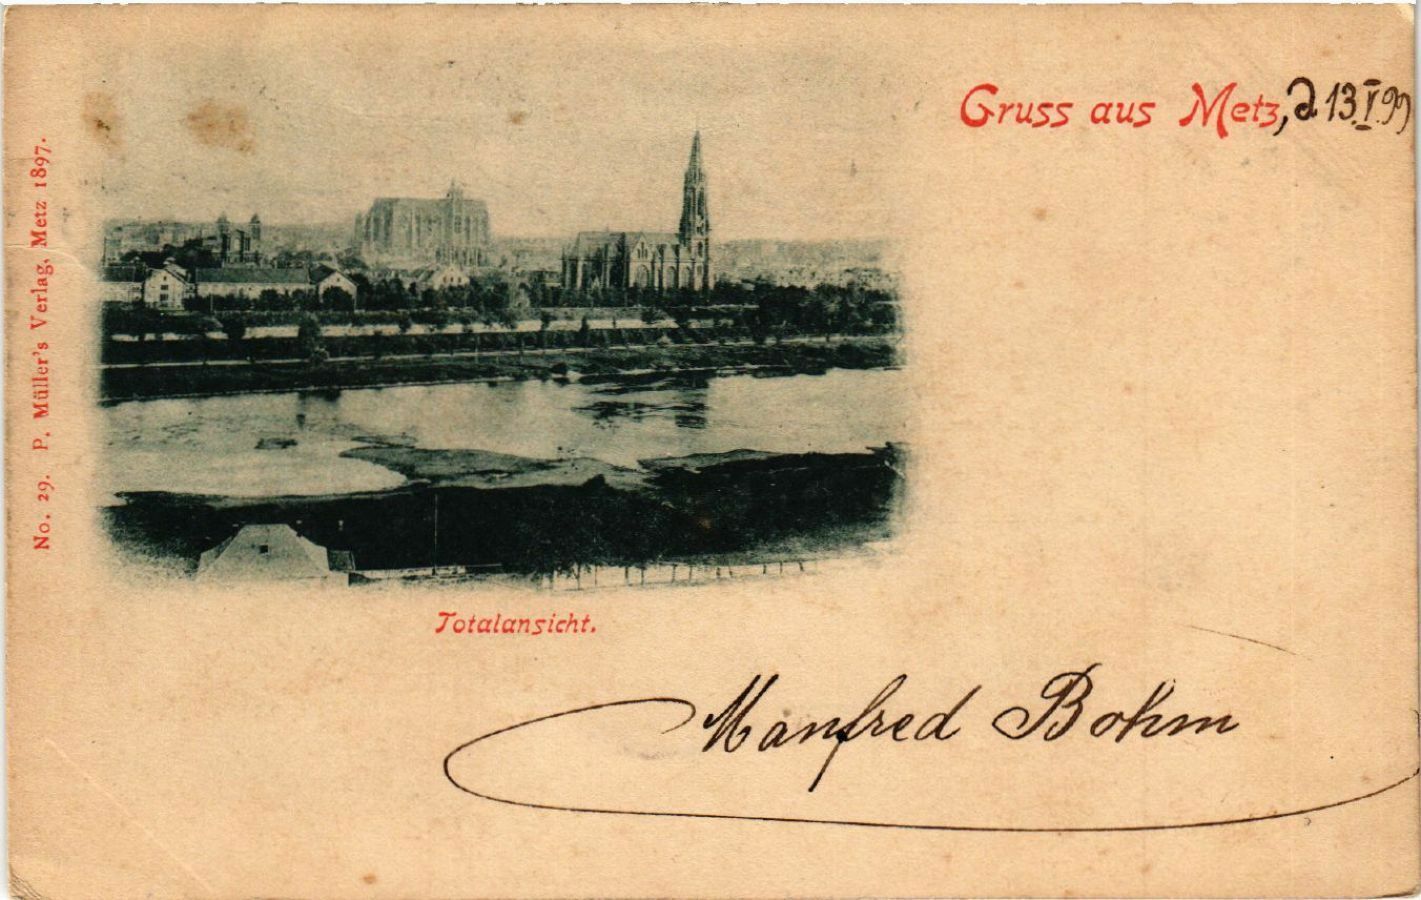 Gruss aus Metz, d 13.V.99
No. 29. P. Müller's Verlag, Metz 1897.
Totalansicht.
Manfred Bohm